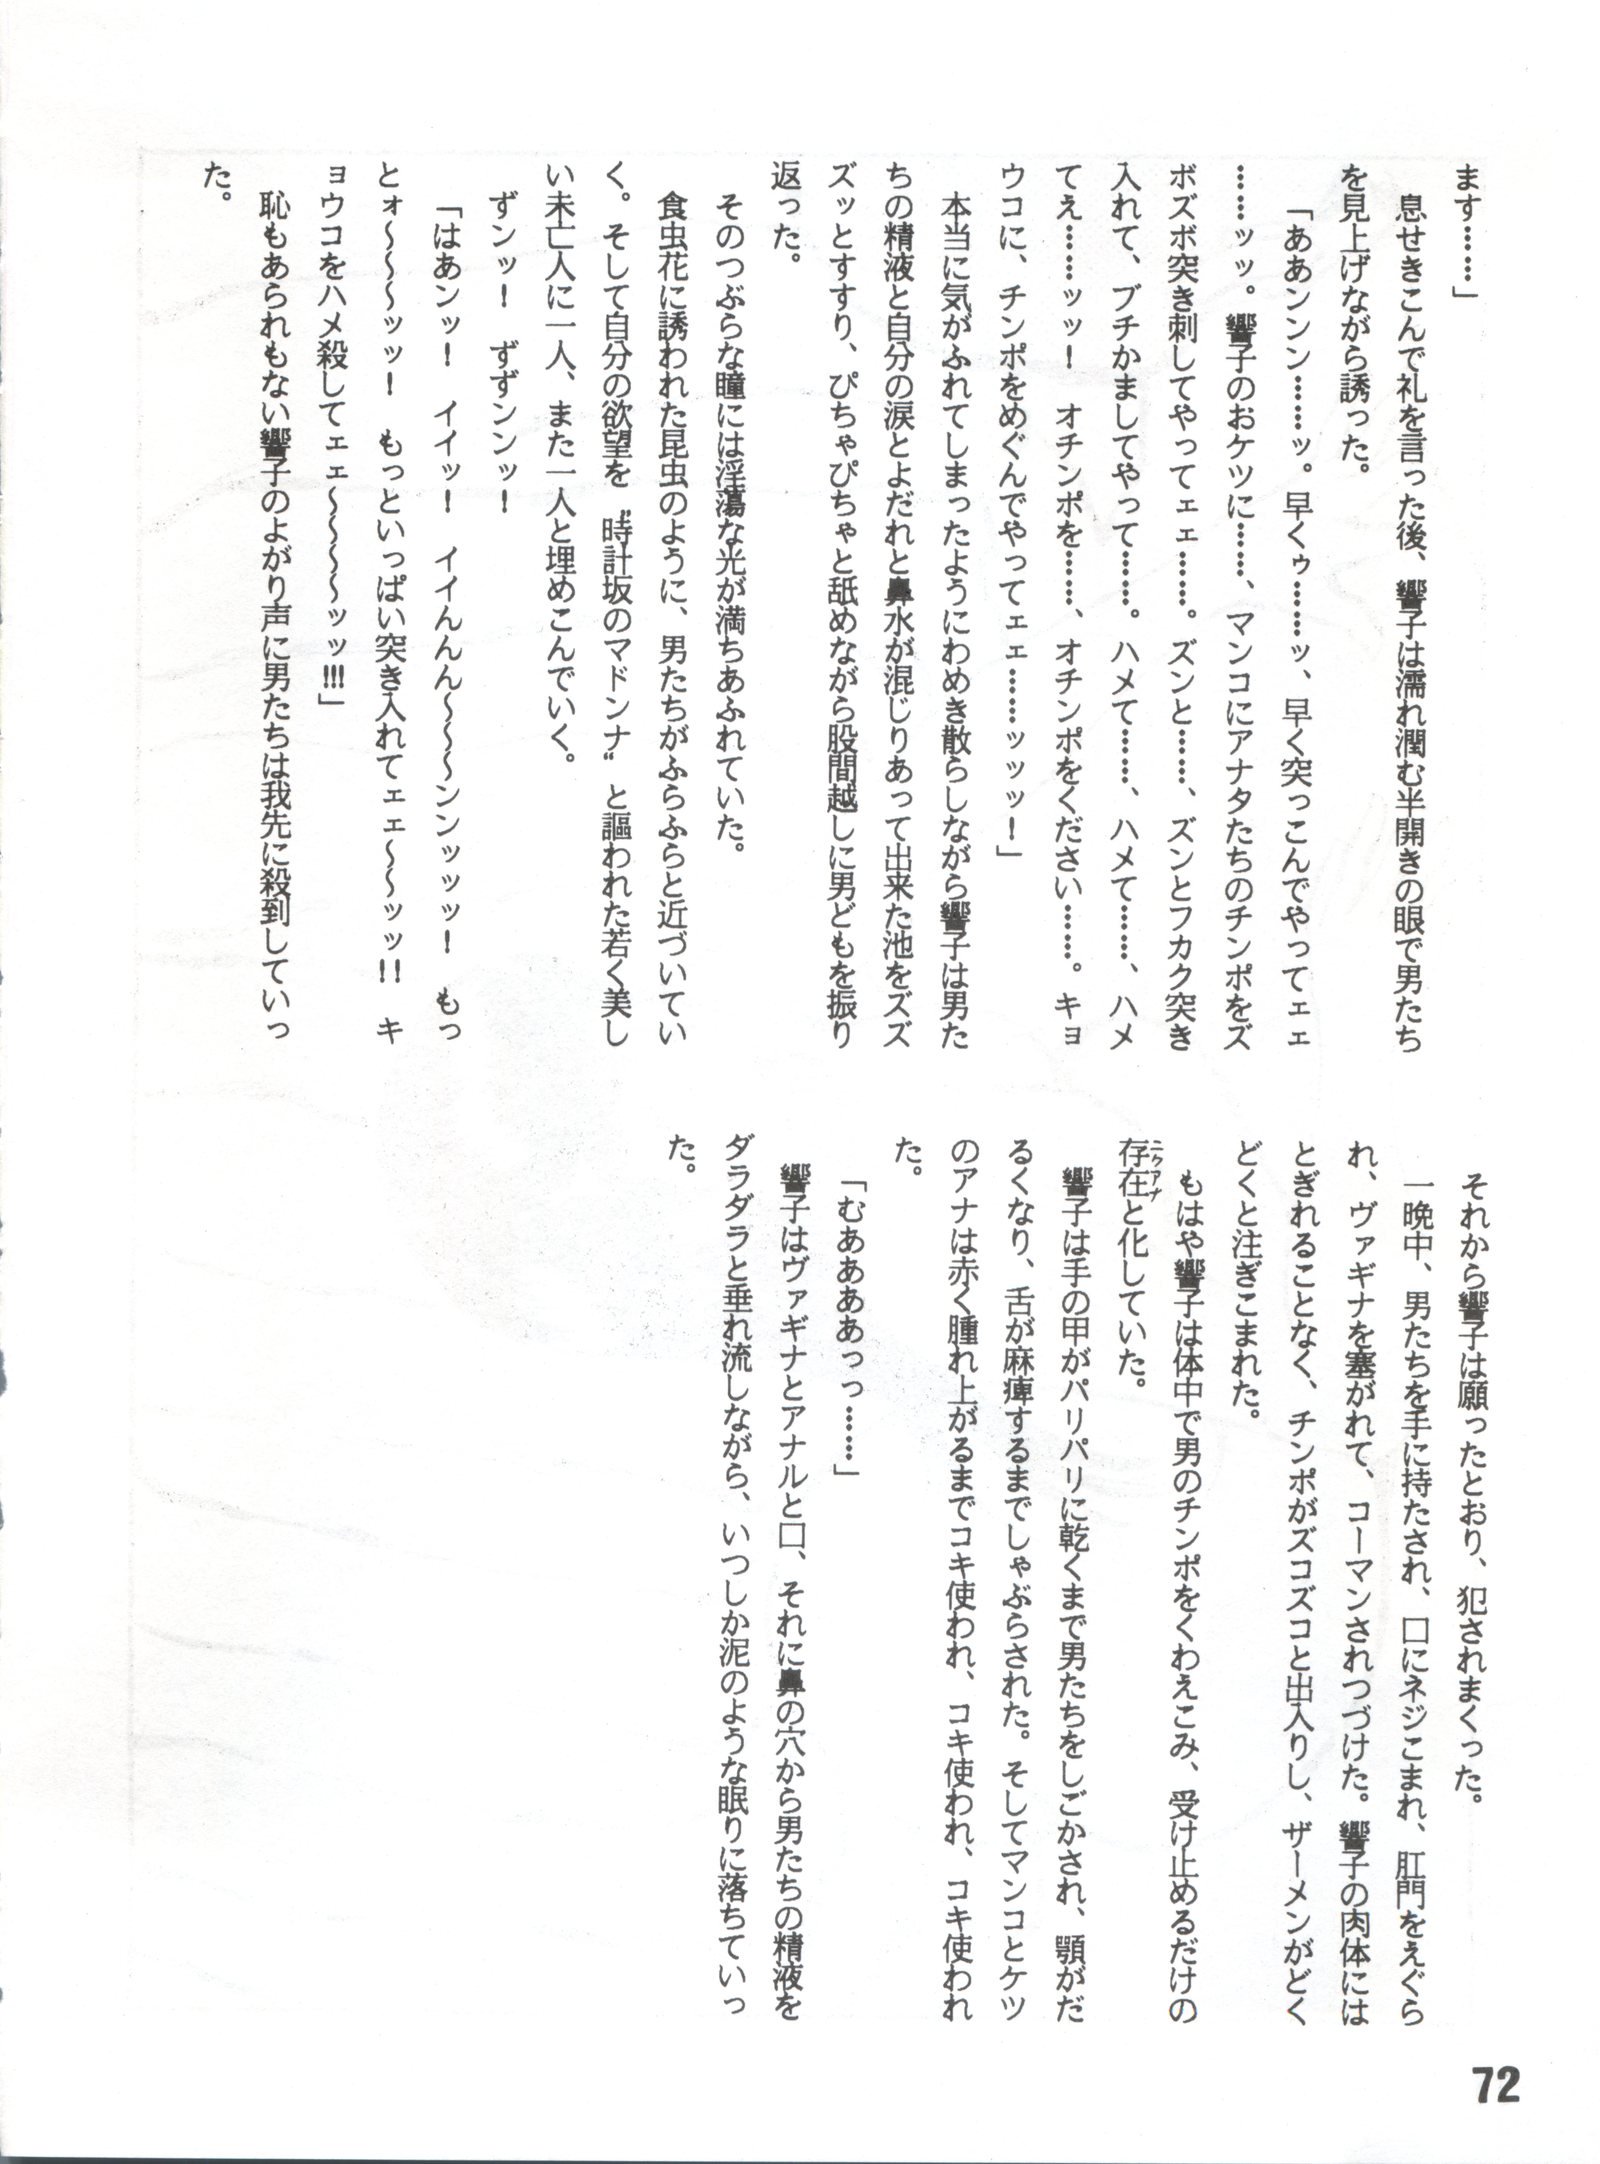 ます……」
息せきこんで礼を言った後、響子は濡れ潤む半開きの眼で男たち
を見上げながら誘った。
「ああンンン……ッ。早くゥ……ッ、早く突っこんでやってェェ
……ッッ。響子のおケツに……、マンコにアナタたちのチンポをズ
ボズボ突き刺してやってェェ……。ズンと……、ズンとフカク突き
入れて、ブチかましてやって……。ハメて……、ハメて……、ハメ
てえ……ッッ！　オチンポを……、オチンポをください……。キョ
ウコに、チンポをめぐんでやってェェ……ッッッ！」
本当に気がふれてしまったようにわめき散らしながら響子は男た
ちの精液と自分の涙とよだれと鼻水が混じりあって出来た池をズズ
ズッとすすり、ぴちゃぴちゃと舐めながら股間越しに男どもを振り
返った。
そのつぶらな瞳には淫蕩な光が満ちあふれていた。
食虫花に誘われた昆虫のように、男たちがふらふらと近づいてい
く。そして自分の欲望を〝時計坂のマドンナ〟と謳われた若く美し
い未亡人に一人、また一人と埋めこんでいく。
ずンッ！　ずずンンッ！
「はあンッ！　イイッ！　イイんんん〜〜〜ンンッッッ！　もっ
とォ〜〜〜〜ッッ！　もっといっぱい突き入れてェェ〜〜ッッ!!　キ
ョウコをハメ殺してェェ〜〜〜〜〜ッッ!!!」
恥もあられもない響子のよがり声に男たちは我先に殺到していっ
た。
それから響子は願ったとおり、犯されまくった。
一晩中、男たちを手に持たされ、口にネジこまれ、肛門をえぐら
れ、ヴァギナを塞がれて、コーマンされつづけた。響子の肉体には
とぎれることなく、チンポがズコズコと出入りし、ザーメンがどく
どくと注ぎこまれた。
もはや響子は体中で男のチンポをくわえこみ、受け止めるだけの
存在ニクアナと化していた。
響子は手の甲がパリパリに乾くまで男たちをしごかされ、顎がだ
るくなり、舌が麻痺するまでしゃぶらされた。そしてマンコとケツ
のアナは赤く腫れ上がるまでコキ使われ、コキ使われ、コキ使われ
た。
「むああああっっ……」
響子はヴァギナとアナルと口、それに鼻の穴から男たちの精液を
ダラダラと垂れ流しながら、いつしか泥のような眠りに落ちていっ
た。
72